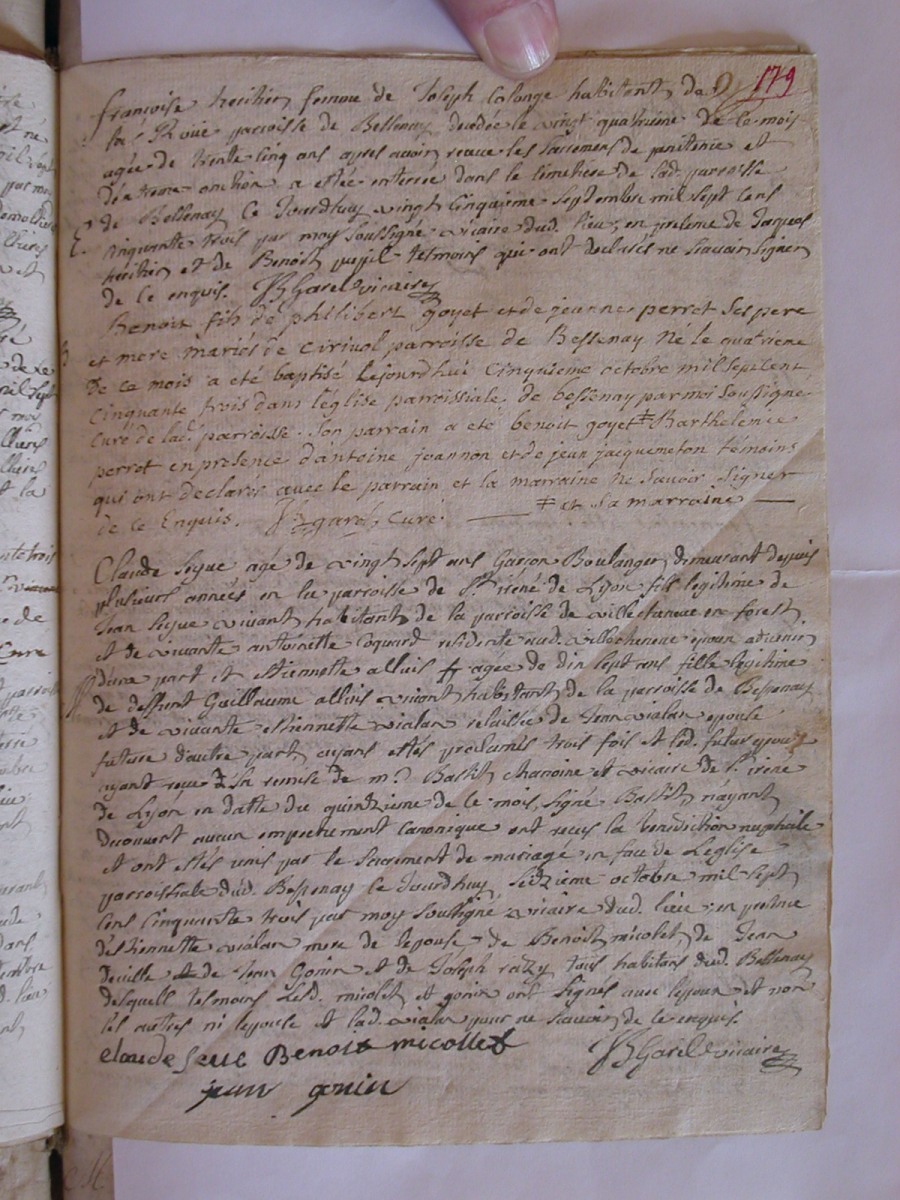 179
françoise heritier femme de Joseph Colonge habitants de
la Roüe parroisse de Bessenay decedée le vingt quatrieme de ce mois
agée de trente cinq ans apres avoir receue les sacremens de penitence et
d'extreme onction a estée enterrée dans le cimetiere de lad. parroisse
de Bessenay ce Jourdhuy vingt cinquieme septembre mil sept cens
cinquante trois par moy soussigné vicaire dud. lieu, en presence de Jacques
heritier et de Benoit pupil tesmoins qui ont declarés ne scavoir signer
de ce enquis. Garel vicaire
Benoit fils de philibert goyet et de jeanne perret ses pere
et mere mariés de parroisse de Bessenay né le quatrieme
de ce mois a été baptisé cejourdhui cinquieme octobre mil sept cent
cinquante trois dans l'église parroissiale de bessenay par moi soussigné
curé de lad. parroisse. Son parrain a été benoit goyet ‡ Barthelemie
perret en presence d'antoine joannon et de jean jacquemeton témoins
qui ont declarés avec le parrain et la marraine ne savoir signer
de ce Enquis. garel, curé. ‡ et sa marraine
Claude Sigue agé de vingt sept ans Garçon Boulanger demeurant depuis
plusieurs années en la parroisse de St irené de Lyon fils legitime de
Jean Sigue vivant habitant de la parroisse de villecheneve en forest
et de vivante antoinette Coquard residente aud. villecheneve epoux advenir
d'une part et Etiennette alluis agée de dix sept ans fille legitime
de deffunt Guillaume alluis vivant habitant de la parroisse de Bessenay
et de vivante etiennette vialan relaissée de Jean vialan epouse
future d'autre part, ayant estés proclamés trois fois et led. futur epoux
ayant reçue remise de mr Bastit chanoine et vicaire de St irené
de Lyon en datte du quinzieme de ce mois, signé Bastit, n'ayant
decouvert aucun empechement canonique ont reçus la benediction nuptiale
et ont estés unis par le sacrement de mariage en face de L'eglise
parroissiale dud. Bessenay ce Jourdhuy seizieme octobre mil sept
cens cinquante trois par moy soussigné vicaire dud. lieu, en presence
d'etiennette vialan mere de lepouse, de Benoit micolet, de Jean
et de Jean Gonin et de Joseph tous habitans dud. Bessenay
desquels tesmoins Lesd. micolet et gonin ont signés avec lepoux et non
les autres ni lepouse et lad. vialan pour ne scavoir, de ce enquis.
claude Benoit micollet Garel vicaire
jean gonin